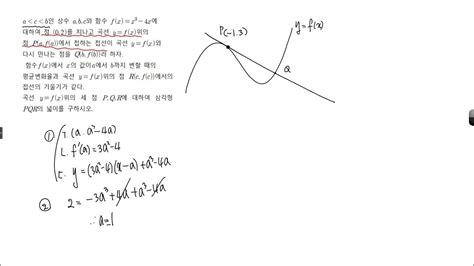 a<c<b인 상수 a,b,c와 함수 f(x)=x³-4x에
대하여 점 (0,2)를 지나고 곡선 y=f(x)위의
점 P(a,f(a))에서 접하는 접선이 곡선 y=f(x)와
다시 만나는 점을 Q(b,f(b))라 하자.
함수f(x)에서 x의 값이a에서 b까지 변할 때의
평균변화율과 곡선 y=f(x)위의 점 R(c,f(c))에서의
접선의 기울기가 같다.
곡선 y=f(x)위의 세 점 P,Q,R에 대하여 삼각형
PQR의 넓이를 구하시오.
P(-1,3)
y=f(x)
Q
① T. (a, a³-4a)
L. f'(a)=3a²-4
E. y=(3a²-4)(x-a)+a³-4a
② 2=-3a³+4a+a³-4a
∴ a=-1